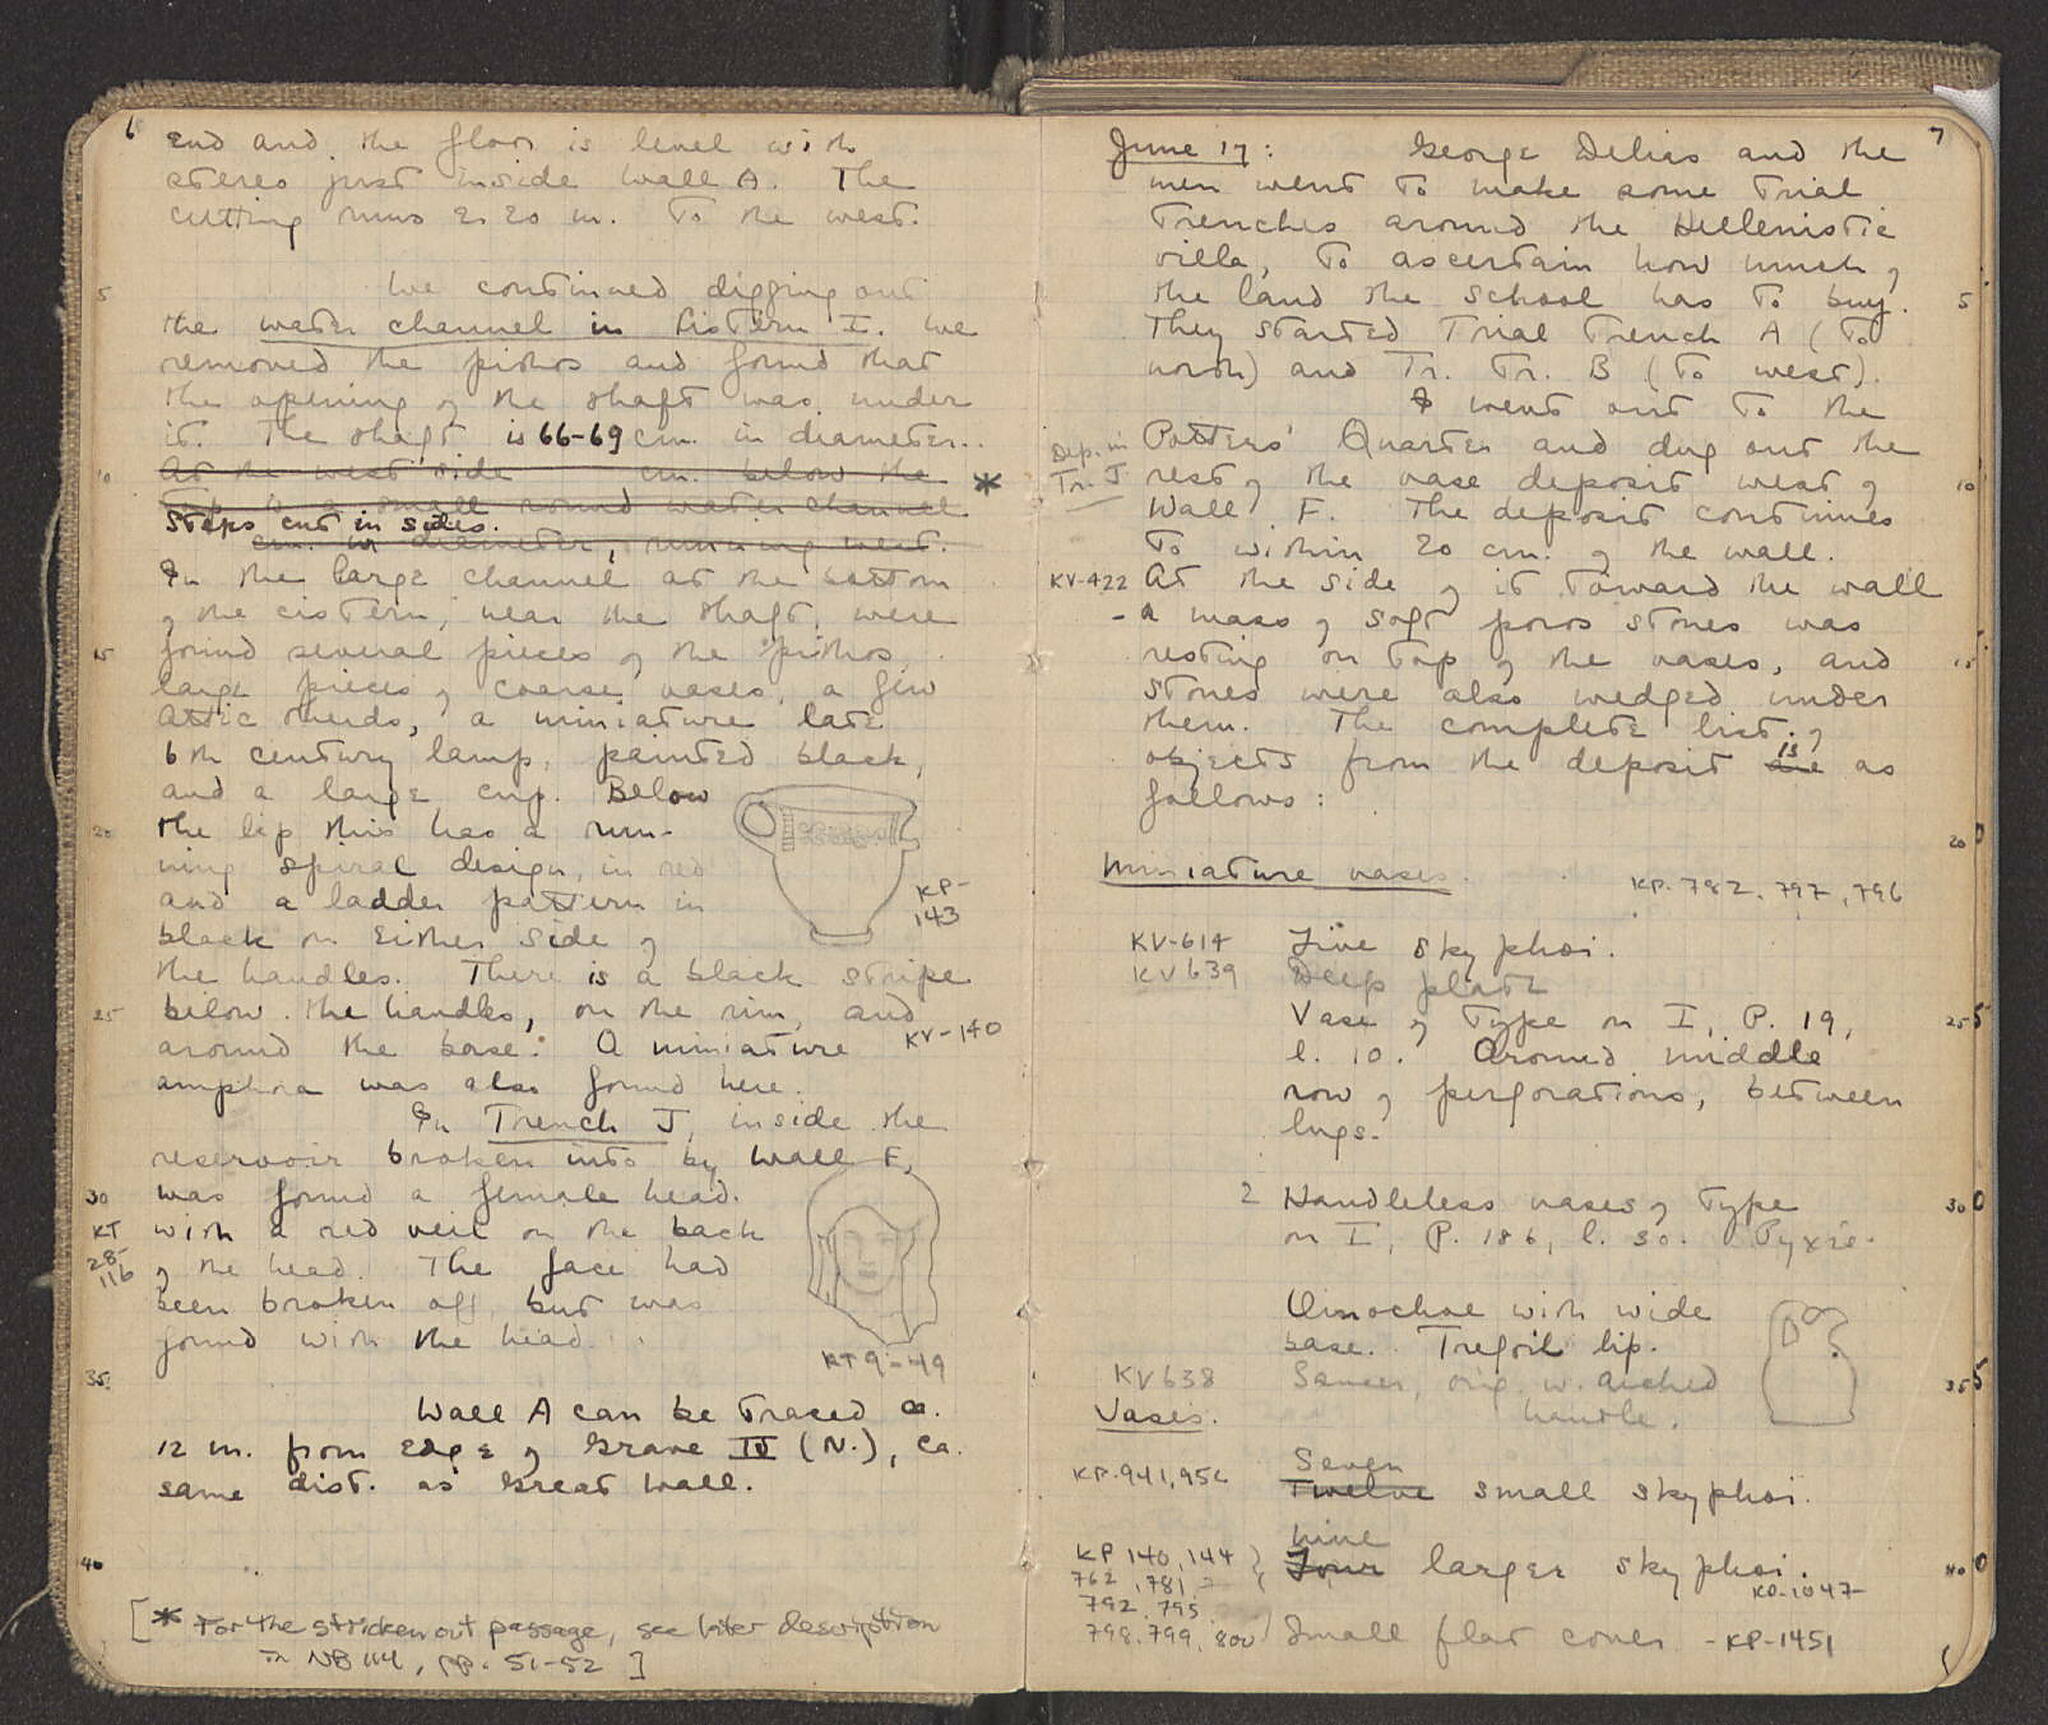 6
End and the floor is level with
stereo just inside Wall A. The
cutting runs 2.20 m. to the west.
5
We continued digging out
the water channel in Cistern I. We
removed the pithos and found that
the opening of the shaft was under
it. The shaft is 66-69 cm. in diameter.
10
At the west side cm. below the
top is a small round water channel *
Steps cut in sides.
cm. in diameter, running west.
In the large channel at the bottom
of the cistern, near the shaft, were
15
found several pieces of the pithos,
large pieces of coarse vases, a few
Attic sherds, a miniature late
6th century lamp, painted black,
and a large cup. Below
20
the lip this has a run-
ning spiral design, in red
and a ladder pattern in
KP-
143
black on either side of
the handles. There is a black stripe
25
below the handles, on the rim, and
around the base. A miniature
KV-140
amphora was also found here.
In Trench J, inside the
reservoir broken into by Wall F,
30
was found a female head
KT
with a red veil on the back
28-
116
of the head. The face had
been broken off, but was
found with the head.
KT 9-49
35
Wall A can be traced ca.
12 m. from edge of Grave IV (N.), ca.
same dist. as Great Wall.
40
[* For the stricken out passage, see later description
in NB 114, pp. 51-52 ]
7
June 17: George Delias and the
men went to make some trial
trenches around the Hellenistic
villa, to ascertain how much of
the land the School has to buy. 5
They started Trial Trench A (to
north) and Tr. Tr. B (to west).
I went out to the
Dep. in
Tr. J
Potters' Quarter and dug out the
rest of the vase deposit west of 10
Wall F. The deposit continues
to within 20 cm. of the wall.
KV-422 At the side of it toward the wall
- a mass of soft poros stones was
resting on top of the vases, and 15
stones were also wedged under
them. The complete list of
objects from the deposit are is as
follows:
20
Miniature vases.
KP. 782, 797, 796
KV-614 Five skyphoi.
KV 639 Deep plate
Vase of type on I, P. 19, 25
l. 10. Around middle
row of perforations, between
lugs.
2 Handleless vases of type 30
on I, P. 186, l. 30. Pyxis.
Oinochoe with wide
base. Trefoil lip.
KV 638 Saucer, orig. w. arched 35
handle.
Vases.
Seven
KP. 941, 956 Twelve small skyphoi.
Nine
KP 140, 144 Four larger skyphoi. 40
762, 781
KP-1047
792, 795
798, 799, 800 Small flat cover - KP-1451